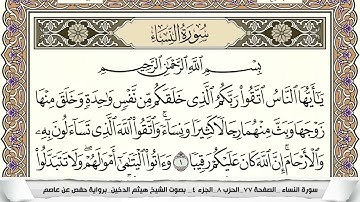 سُورَةُ النِّسَاءِ
بِسْمِ اللَّهِ الرَّحْمَٰنِ الرَّحِيمِ
يَا أَيُّهَا النَّاسُ اتَّقُوا رَبَّكُمُ الَّذِي خَلَقَكُم مِّن نَّفْسٍ وَاحِدَةٍ وَخَلَقَ مِنْهَا
زَوْجَهَا وَبَثَّ مِنْهُمَا رِجَالًا كَثِيرًا وَنِسَاءً ۚ وَاتَّقُوا اللَّهَ الَّذِي تَسَاءَلُونَ بِهِ
وَالْأَرْحَامَ ۚ إِنَّ اللَّهَ كَانَ عَلَيْكُمْ رَقِيبًا ١ وَآتُوا الْيَتَامَىٰ أَمْوَالَهُمْ ۖ وَلَا تَتَبَدَّلُوا
سورة النساء _ الصفحة ٧٧_ الحزب ٨_ الجزء ٤_ بصوت الشيخ هيثم الدخين_ برواية حفص عن عاصم